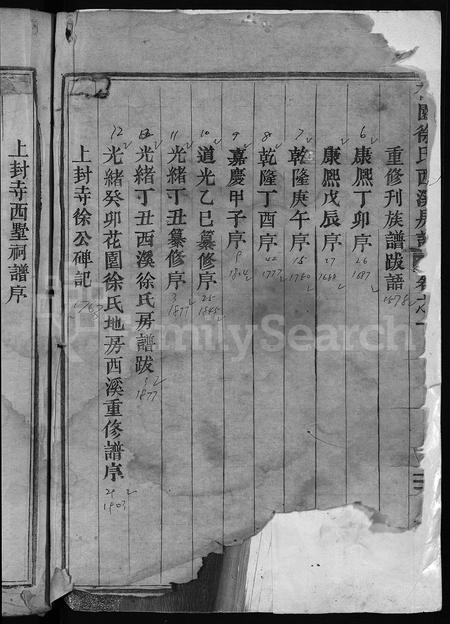 花園徐氏西溪房譜
重修刊族譜跋語 1678
6 康熙丁卯序 26 1687
康熙戊辰序 27 1688
7 乾隆庚午序 15 1750
8 乾隆丁酉序 42 1777
9 嘉慶甲子序 9 1804
10 道光乙巳纂修序 25 1845
11 光緒丁丑纂修序 3 1877
光緒丁丑西溪徐氏房譜跋 3 1877
12 光緒癸卯花園徐氏地房西溪重修譜序 29 1903
上封寺徐公碑記
上封寺西墅祠譜序
FamilySearch